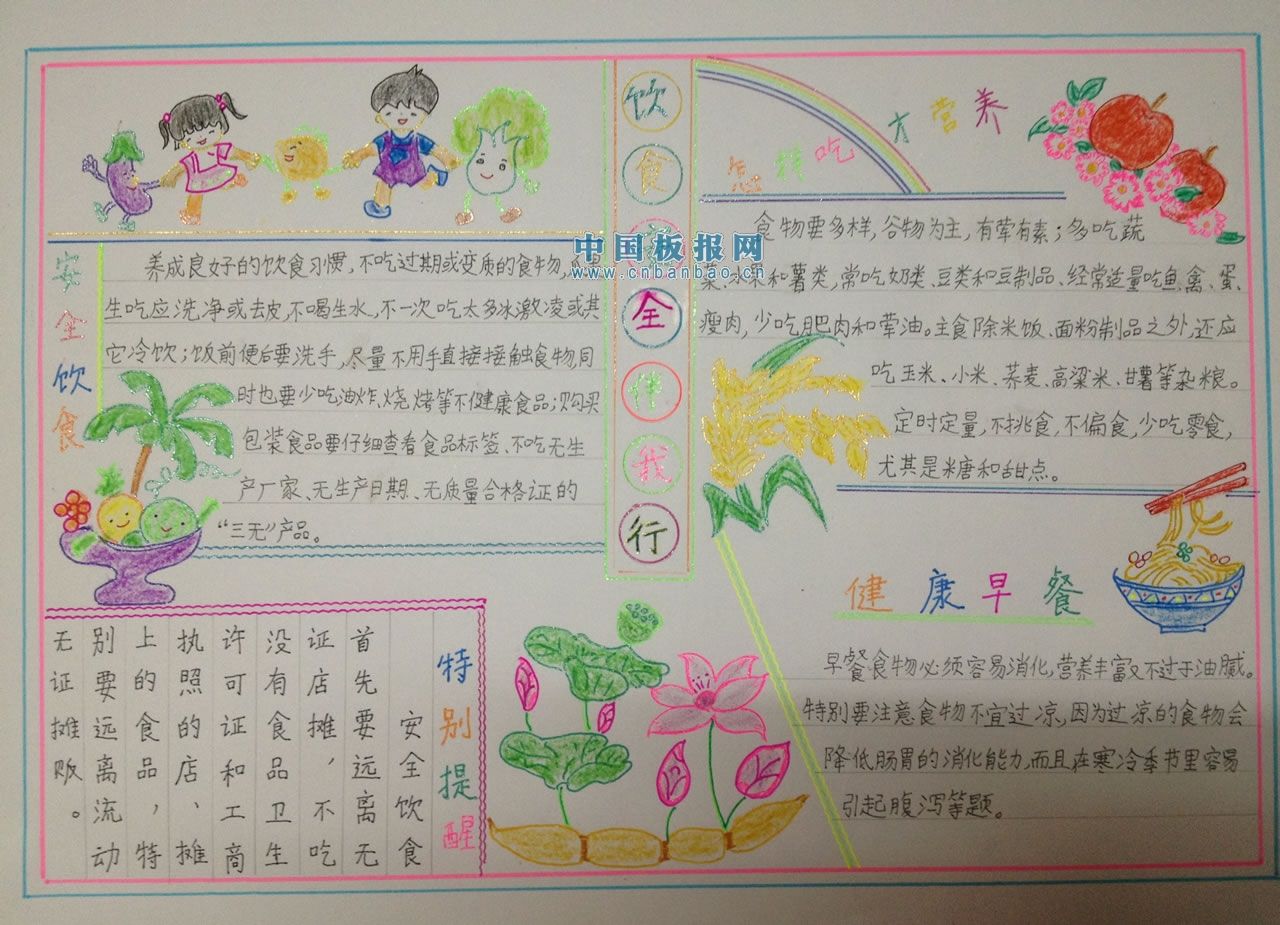 饮食安全伴我行
安全饮食
养成良好的饮食习惯,不吃过期或变质的食物,
生吃应洗净或去皮,不喝生水,不一次吃太多冰激凌或其
它冷饮;饭前便后要洗手,尽量不用手直接接触食物,同
时也要少吃油炸、烧烤等不健康食品;购买
包装食品要仔细查看食品标签、不吃无生
产厂家、无生产日期、无质量合格证的
“三无”产品。
怎样吃才营养
食物要多样,谷物为主,有荤有素;多吃蔬
菜、水果和薯类,常吃奶类、豆类和豆制品、经常适量吃鱼、禽、蛋、
瘦肉,少吃肥肉和荤油。主食除米饭、面粉制品之外,还应
吃玉米、小米、荞麦、高梁米、甘薯等杂粮。
定时定量,不挑食,不偏食,少吃零食,
尤其是糖和甜点。
特别提醒
安全饮食
首先要远离无
证店摊,不吃
没有食品卫生
许可证和工商
执照的店、摊
上的食品,特
别要远离流动
无证摊贩。
健康早餐
早餐食物必须容易消化,营养丰富又不过于油腻。
特别要注意食物不宜过凉,因为过凉的食物会
降低肠胃的消化能力,而且在寒冷季节里容易
引起腹泻等题。
中国板报网
www.cnbanbao.cn